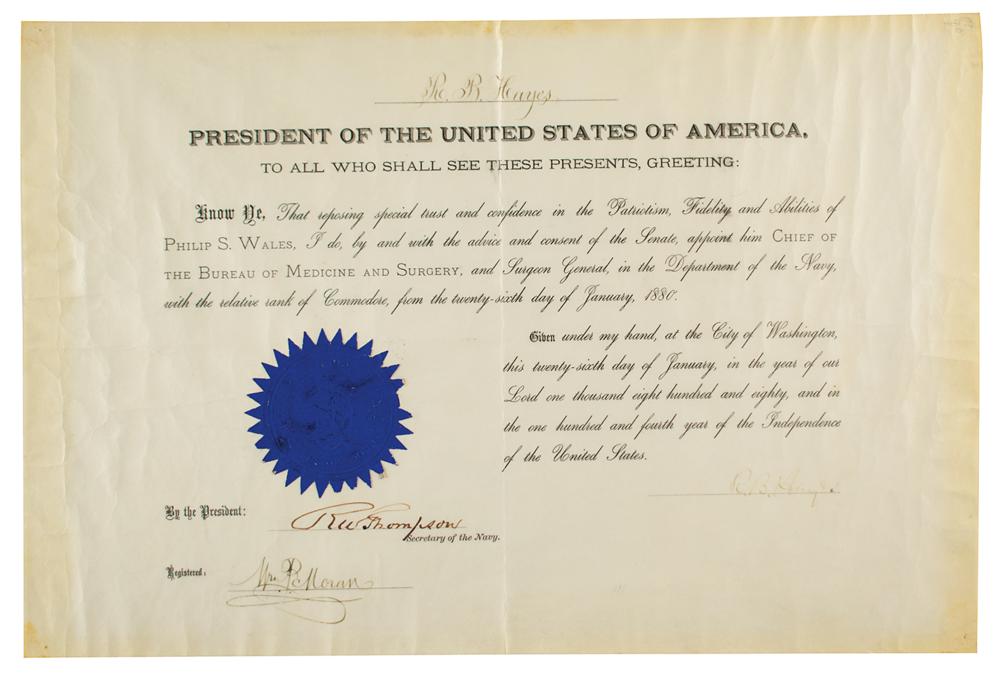 R. B. Hayes
PRESIDENT OF THE UNITED STATES OF AMERICA,
TO ALL WHO SHALL SEE THESE PRESENTS, GREETING:
Know Ye, That reposing special trust and confidence in the Patriotism, Fidelity and Abilities of
PHILIP S. WALES, I do, by and with the advice and consent of the Senate, appoint him CHIEF OF
THE BUREAU OF MEDICINE AND SURGERY, and Surgeon General, in the Department of the Navy,
with the relative rank of Commodore, from the twenty-sixth day of January, 1880.
Given under my hand, at the City of Washington,
this twenty-sixth day of January, in the year of our
Lord one thousand eight hundred and eighty, and in
the one hundred and fourth year of the Independence
of the United States.
R. B. Hayes
By the President:
R W Thompson
Secretary of the Navy.
Registered:
Wm P Moran